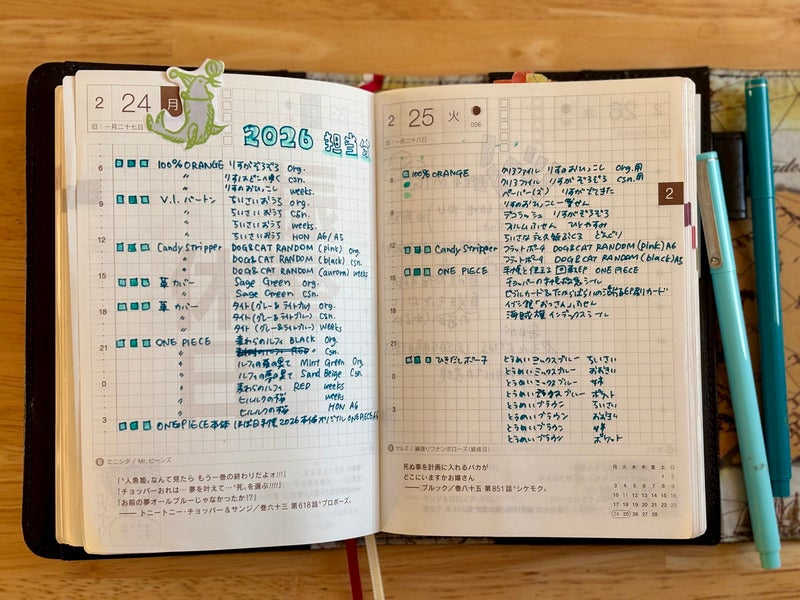 2 24 月
旧:一月二十七日
2026 担当分
6
100% ORANGE りすがぞろぞろ Org.
〃 りすスピンゆく csn.
〃 りすのおひっこし weeks.
9
V.I. バートン ちいさいおうち org.
〃 ちいさいおうち csn.
〃 ちいさいおうち weeks
〃 ちいさいおうち HON A6/A5
12
Candy Stripper DOG&CAT RANDOM (pink) Org.
〃 DOG&CAT RANDOM (black) csn.
〃 DOG&CAT RANDOM (aurora) weeks
15
革カバー Sage Green Org.
〃 Sage Green csn.
18
革カバー タイト(グレー&ライトブルー) Org.
〃 タイト(グレー&ライトブルー) csn.
〃 タイト(グレー&ライトブルー) weeks
21
ONE PIECE 麦わらのルフィ BLACK Org.
〃 csn.
〃 ルフィの夢の果て Mint Green Org.
〃 ルフィの夢の果て Sand Beige Csn.
0
〃 麦わらのルフィ RED weeks
〃 ヒルルクの桜 weeks
〃 ヒルルクの桜 HON A6
3
ONE PIECE本体 ほぼ日手帳2026本体オリジナル ONE PIECE A6
エニシダ / Mr.ビーンズ
「“人魚姫„なんて見たら もう一巻の終わりだよォ!!!」
「チョッパーおれは…夢を叶えて…“死„を選ぶ!!!!」
「お前の夢オールブルーじゃなかったか!?」
——トニートニー・チョッパー&サンジ/巻六十三 第618話“プロポーズ„
2 25 火
056
旧:一月二十八日
6
100% ORANGE クリアファイル りすのおひっこし Org.用
クリアファイル りすが ぞろぞろ csn.用
ペーパー(ズ) りすがでてきた
9
りすのおひっこし一筆せん
デコラッシュ りすがぞろぞろ
フィルムふせん ひとやすみ
ちいさな 紙ぶくろ どんぐり
12
Candy Stripper フラットポーチ DOG&CAT RANDOM (pink) A6
フラットポーチ DOG&CAT RANDOM (black) A5
15
ONE PIECE 手帳と使える ONE PIECE
チョッパーの シール
ビブルカード&たからばらいの 海賊 カード
18
イガラム「おっさん」ふせん
海賊旗 インデックスシール
2
21
ひきだしポーチ とうめいミックスブルー ちいさい
とうめいミックスブルー おおきい
とうめいミックスブルー
0
とうめいミックスブルー ポケット
とうめいブラウン ちいさい
とうめいブラウン おおきい
3
とうめいブラウン
とうめいブラウン ポケット
ゲルズ / 鍋滑リフナンボローズ(結成日)
死ぬ事を計画に入れるバカが
どこにいますかお嬢さん
——ブルック/巻八十五 第851話“シケモク„
月 火 水 木 金 土 日
1 2
3 4 5 6 7 8 9
10 11 12 13 14 15 16
17 18 19 20 21 22 23
24 25 26 27 28